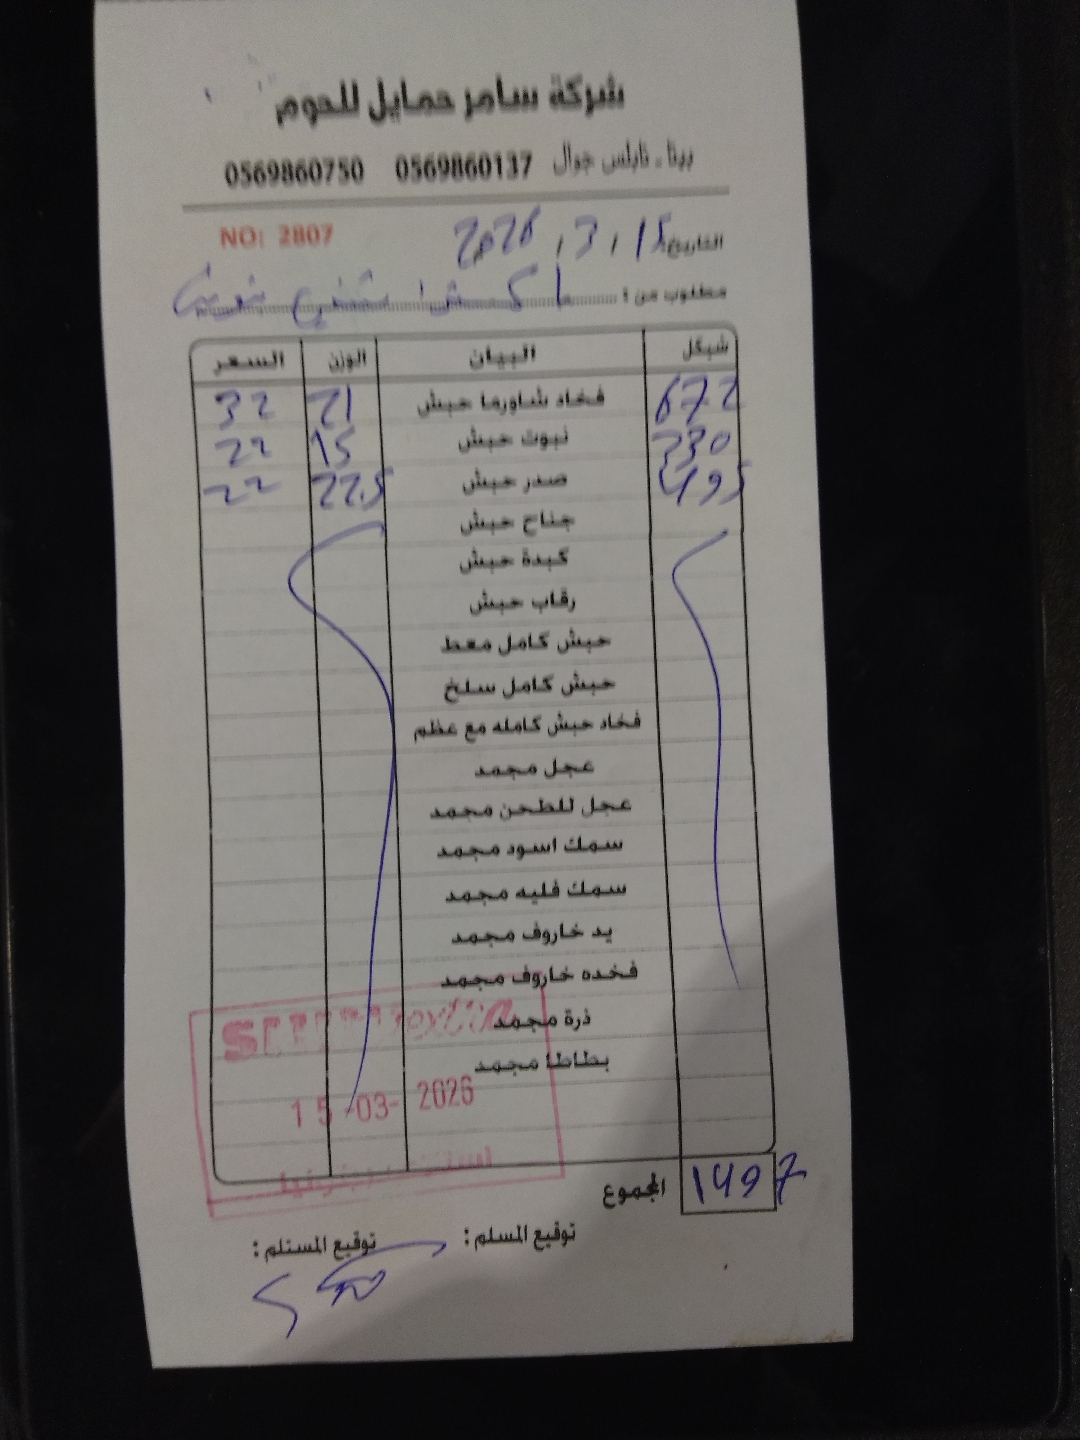 شركة سامر حمايل للحوم
بيتا - نابلس جوال 0569860137 0569860750
NO: 2807
التاريخ: 15 / 3 / 2026
مطلوب من :
شيكل البيان الوزن السعر
672 فخاد شاورما حبش 21 32
330 نبوت حبش 15 22
495 صدر حبش 22.5 22
جناح حبش
كبدة حبش
رقاب حبش
حبش كامل معط
حبش كامل سلخ
فخاد حبش كامله مع عظم
عجل مجمد
عجل للطحن مجمد
سمك اسود مجمد
سمك فليه مجمد
يد خاروف مجمد
فخده خاروف مجمد
ذرة مجمد
بطاطا مجمد
15-03-2026
المجموع 1497
توقيع المسلم : توقيع المستلم :